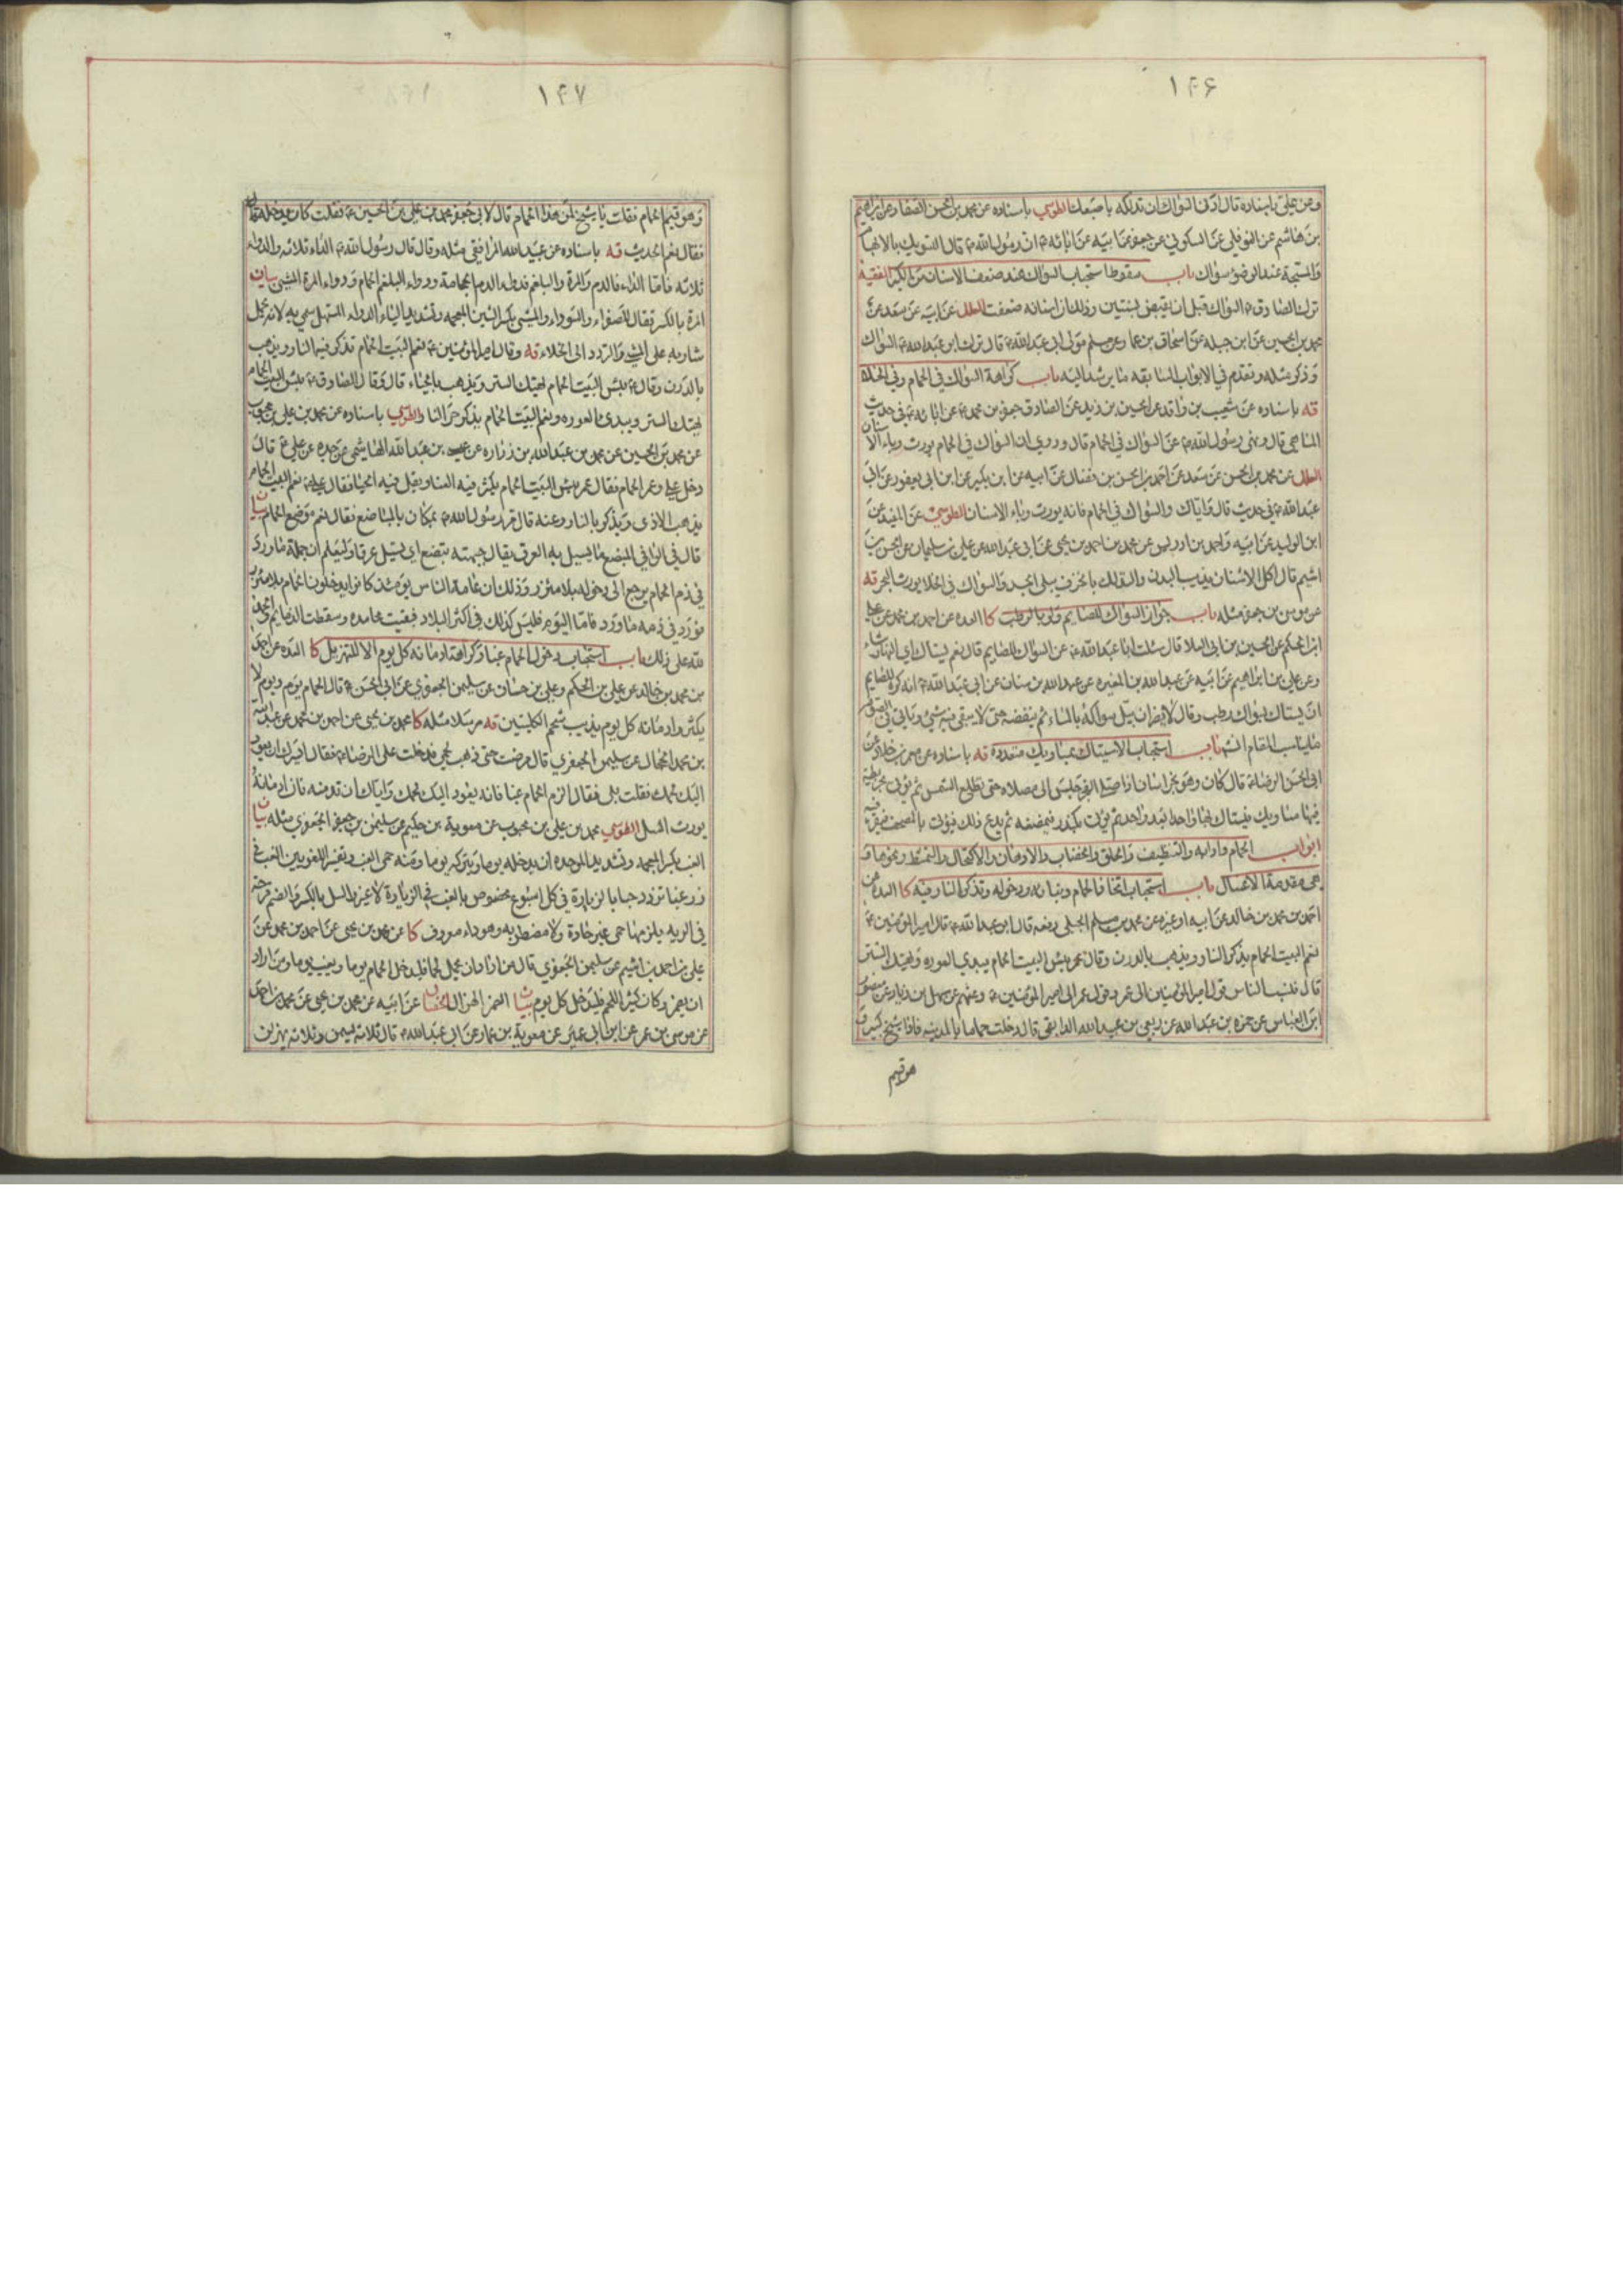 ١٤٦
وعن علي باسناده قال ادنى السواك ان تدلكه باصبعك الطوسي باسناده عن محمد بن الحسن الصفار عن ابراهيم
بن هاشم عن النوفلي عن السكوني عن جعفر عن ابيه عن ابائه ان رسول الله قال التسويك بالابهام
والمسبحة عند الوضوء سواك باب سقوط استحباب السواك عند ضعف الاسنان من الكبر الفقيه
ترك الصادق السواك قبل ان يقبض بسنتين وذلك ان اسنانه ضعفت العلل عن ابيه عن سعد عن
محمد بن الحسين عن ابن جبله عن اسحاق بن عمار عن مسلم مولى ابي عبد الله قال ترك ابو عبد الله السواك
وذكر مثله وتقدم في الابواب السابقه ما يرشد اليه باب كراهة السواك في الحمام وفي الخلاء
قه باسناده عن شعيب بن واقد عن الحسين بن زيد عن الصادق جعفر بن محمد عن ابائه في حديث
المناهي قال ونهى رسول الله عن السواك في الحمام قال وروي ان السواك في الحمام يورث وباء الاسنان
العلل عن محمد بن الحسن عن سعد عن احمد بن الحسن بن فضال عن ابيه عن ابن بكير عن ابن ابي يعفور عن ابي
عبد الله في حديث قال واياك والسواك في الحمام فانه يورث وباء الاسنان الطوسي عن المفيد عن
ابن الوليد عن ابيه واحمد بن ادريس عن محمد بن احمد بن يحيى عن ابي عبد الله عن علي بن سليمان عن الحسن بن
اشيم قال اكل الاشنان يذيب البدن والتدلك بالخزف يبلي الجسد والسواك في الخلا يورث البخر قه
عن موسى بن جعفر مثله باب جواز السواك للصايم ولو بالرطب كا العده عن احمد بن محمد عن علي
ابن الحكم عن الحسين بن ابي العلا قال سئلت ابا عبد الله عن السواك للصايم قال نعم يستاك اي النهار شاء
وعن علي بن ابراهيم عن ابيه عن عبد الله بن المغيره عن عبد الله بن سنان عن ابي عبد الله انه كره للصايم
ان يستاك بسواك رطب وقال لا يضر ان يبل سواكه بالماء ثم ينفضه حتى لا يبقى فيه شيء وياتي في الصوم
ما يناسب المقام انشه باب استحباب الاستياك بمساويك متعددة قه باسناده عن معمر بن خلاد عن
ابي الحسن الرضا قال كان وهو بخراسان اذا صلى الفجر جلس الى مصلاه حتى تطلع الشمس ثم يؤتى بخريطة
فيها مساويك فيستاك بها واحدا بعد واحد ثم يؤتى بكندر فيمضغه ثم يدع ذلك فيؤتى بالمصحف فيقرء فيه
ابواب الحمام وادابه والتنظيف والحلق والخضاب والادهان والاكتحال والتمشط ونحوها و
هي مقدمة الاغسال باب استحباب اتخاذ الحمام وبنائه ودخوله وتذكر النار فيه كا العده عن
احمد بن محمد بن خالد عن ابيه او غيره عن محمد بن مسلم الجبلي رفعه قال ابو عبد الله قال امير المؤمنين
نعم البيت الحمام يذكر النار ويذهب بالدرن وقال عمر بئس البيت الحمام يبدي العوره ويهتك الستر
قال فنسب الناس قول امير المؤمنين الى عمر وقول عمر الى امير المؤمنين وعنهم عن سهل بن زياد عن منصور
ابن العباس عن حمزه بن عبد الله عن ربعي بن عبيد الله الدابقي قال دخلت حماما بالمدينه فاذا شيخ كبير و
هو قيم
١٤٧
وهو قيم الحمام فقلت يا شيخ لمن هذا الحمام قال لابي جعفر محمد بن علي بن الحسين فقلت كان يدخله
فقال نعم الحديث قه باسناده عن عبيد الله المرافقي مثله وقال قال رسول الله الداء ثلاثه والدواء
ثلاثه فاما الداء فالدم والمرة والبلغم فدواء الدم الحجامة ودواء البلغم الحمام ودواء المرة المشي بيان
المرة بالكسر تقال للصفراء والسوداء والمشي بكسر الشين المعجمه وتشديد الياء الدواء المسهل سمي به لانه يحمل
شاربه على المشي والتردد الى الخلاء قه وقال امير المؤمنين نعم البيت الحمام تذكر فيه النار ويذهب
بالدرن وقال بئس البيت الحمام يهتك الستر ويذهب بالحياء قال وقال الصادق بئس البيت الحمام
يهتك الستر ويبدي العوره ونعم البيت الحمام يذكر حر النار الطوسي باسناده عن محمد بن علي بن محبوب
عن محمد بن الحسين عن محمد بن عبد الله بن زراره عن عيسى بن عبد الله الهاشمي عن جده عن علي قال
دخل علي وعمر الحمام فقال عمر بئس البيت الحمام يكثر فيه العناء ويقل فيه الحياء فقال علي نعم البيت الحمام
يذهب الاذى ويذكر بالنار وعنه قال مر رسول الله بمكان بالمباضع فقال نعم موضع الحمام بيان
قال في الوافي المبضع ما يسيل به العرق يقال جبهته تبضع اي تسيل عرقا وليعلم ان جملة ما ورد
في ذم الحمام يرجع الى دخوله بلا مئزر وذلك ان عامة الناس يومئذ كانوا يدخلون الحمام بلا مئزر
فورد في ذمه ما ورد فاما اليوم فليس كذلك في اكثر البلاد فبقيت محامده وسقطت الذمايم والحمد
لله على ذلك باب استحباب دخول الحمام غبا وكراهة ادمانه كل يوم الا للتهزيل كا العده عن احمد
بن محمد بن خالد عن علي بن الحكم وعلي بن حسان عن سليمن الجعفري عن ابي الحسن قال الحمام يوم ويوم لا
يكثر وادمانه كل يوم يذيب شحم الكليتين قه مرسلا مثله كا محمد بن يحيى عن احمد بن محمد عن عبد الله
بن محمد الحجال عن سليمن الجعفري قال مرضت حتى ذهب لحمي فدخلت على الرضا فقال ايسرك ان يعود
اليك لحمك فقلت بلى فقال الزم الحمام غبا فانه يعود اليك لحمك واياك ان تدمنه فان ادمانه
يورث السل الطوسي محمد بن علي بن محبوب عن معوية بن حكيم عن سليمن بن جعفر الجعفري مثله بيان
الغب بكسر المعجمه وتشديد الموحده ان يدخله يوما ويتركه يوما ومنه حمى الغب وتفسير اللغويين الغب في
زر غبا تزدد حبا بالزيارة في كل اسبوع مخصوص بالغب في الزيادة لا غير والسل بالكسر والضم قرحة
في الريه يلزمها حمى غير حادة ولا مضطربه وهو داء معروف كا عن محمد بن يحيى عن احمد بن محمد عن
علي بن احمد بن اشيم عن سليمن الجعفري قال من اراد ان يحمل لحما فليدخل الحمام يوما ويغب يوما ومن اراد
ان يضمر وكان كثير اللحم فليدخل كل يوم بيان الضمر الهزال الخصال عن ابيه عن محمد بن يحيى عن محمد بن احمد
عن موسى بن عمر عن ابن ابي عمير عن معوية بن عمار عن ابي عبد الله قال ثلاثة يسمن وثلاثة يهزلن